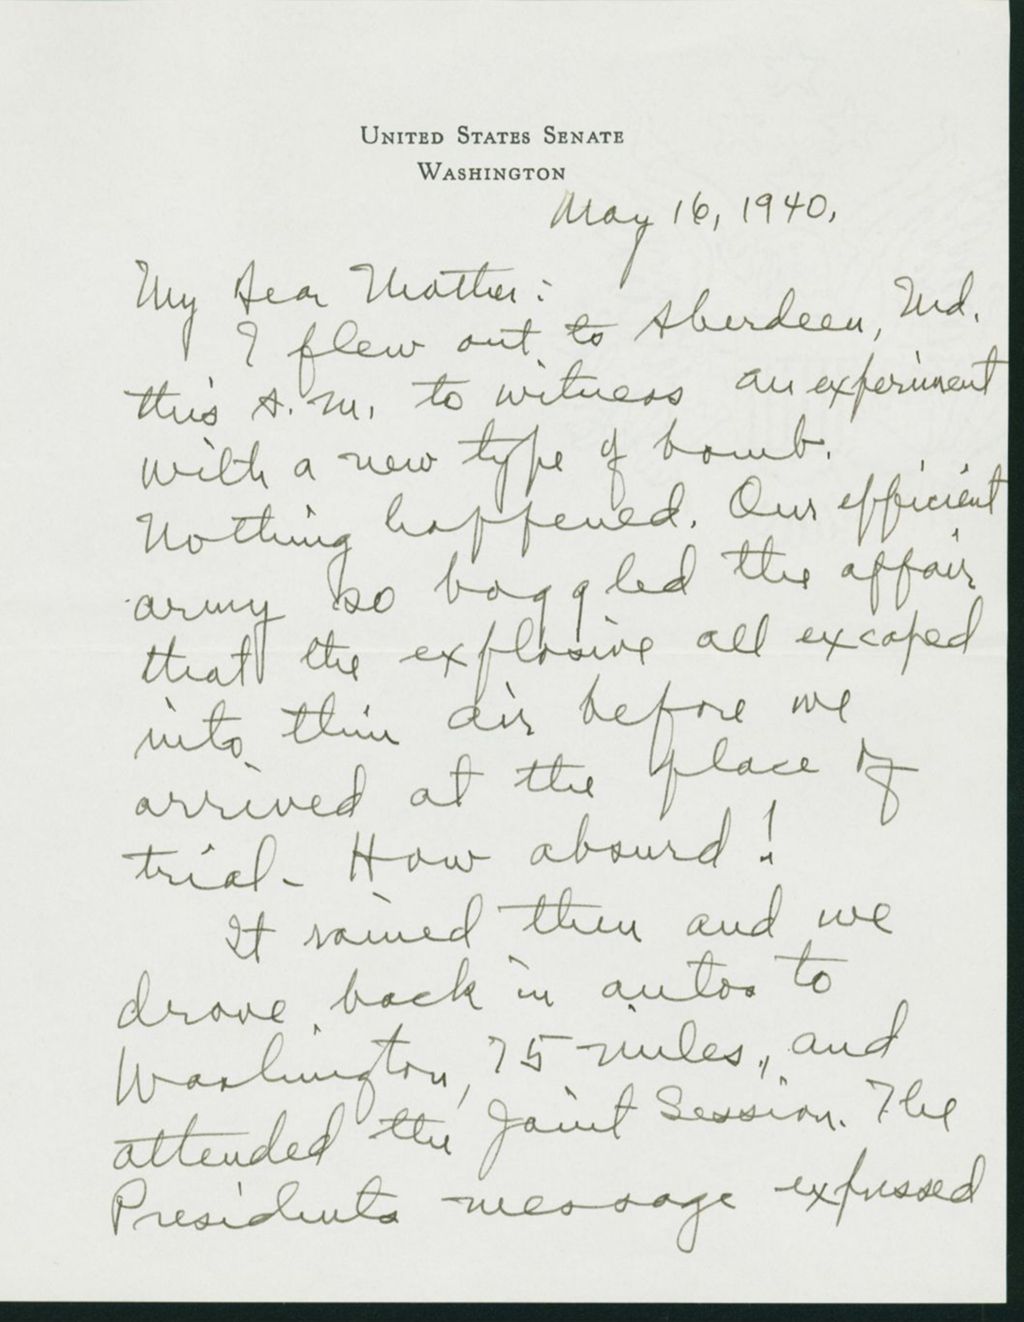 United States Senate
Washington
May 16, 1940.
My Dear Mother:
I flew out to Aberdeen, Md.
this A.M. to witness an experiment
with a new type of bomb.
Nothing happened. Our efficient
army so boggled the affair
that the explosive all excaped
into thin air before we
arrived at the place of
trial. How absurd!
It rained then and we
drove back in autos to
Washington, 75 miles, and
attended the Joint Session. The
Presidents message expressed